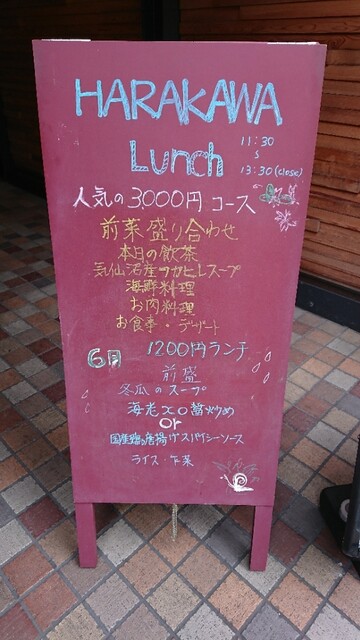 HARAKAWA
Lunch
11:30
S
13:30(close)
人気の3000円コース
前菜盛り合わせ
本日の飲茶
気仙沼産フカヒレスープ
海鮮料理
お肉料理
お食事・デザート
6月
1200円ランチ
前盛
冬瓜のスープ
海老XO醤炒め
or
国産鶏の唐揚げスパイシーソース
ライス・干菜